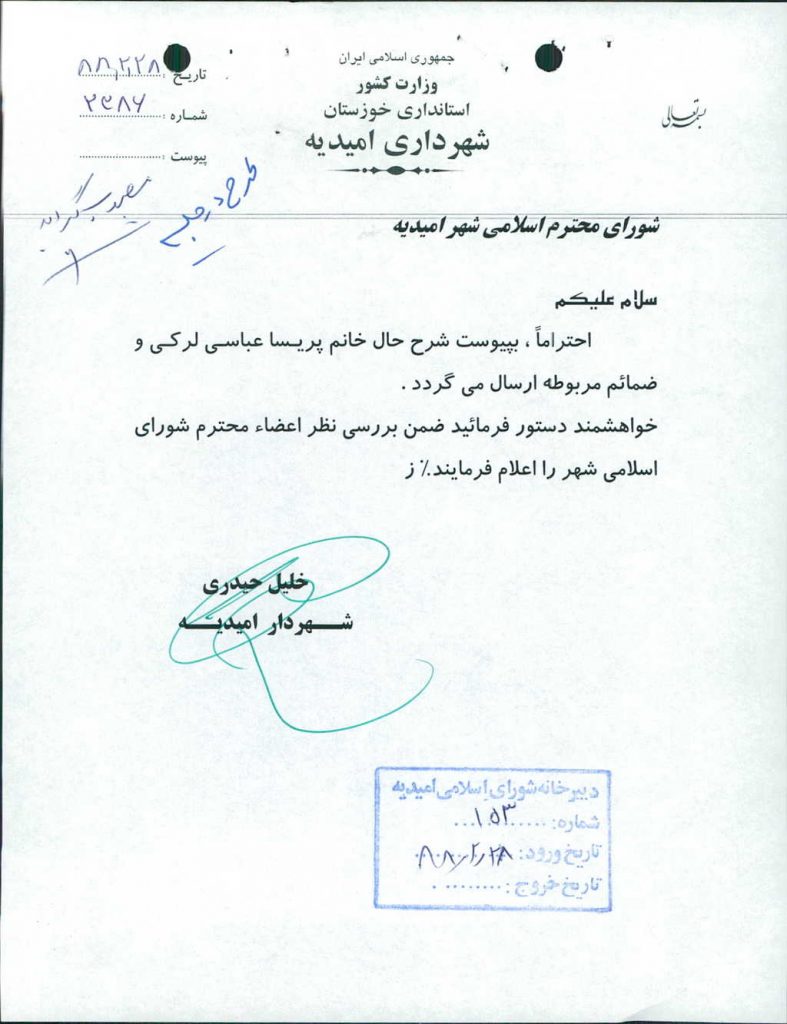 بسمه تعالی
جمهوری اسلامی ایران
وزارت کشور
استانداری خوزستان
شهرداری امیدیه
تاریخ : ۸۸٫۲٫۲۸
شماره : ۲۳۸۶
پیوست :
طرح در جلسه
شورای محترم اسلامی شهر امیدیه
سلام علیکم
احتراماً ، بپیوست شرح حال خانم پریسا عباسی لرکی و
ضمائم مربوطه ارسال می گردد .
خواهشمند دستور فرمائید ضمن بررسی نظر اعضاء محترم شورای
اسلامی شهر را اعلام فرمایند.٪ ز
خلیل حیدری
شهردار امیدیه
دبیرخانه شورای اسلامی امیدیه
شماره: ۱۵۳
تاریخ ورود: ۸۸٫۲٫۲۸
تاریخ خروج :